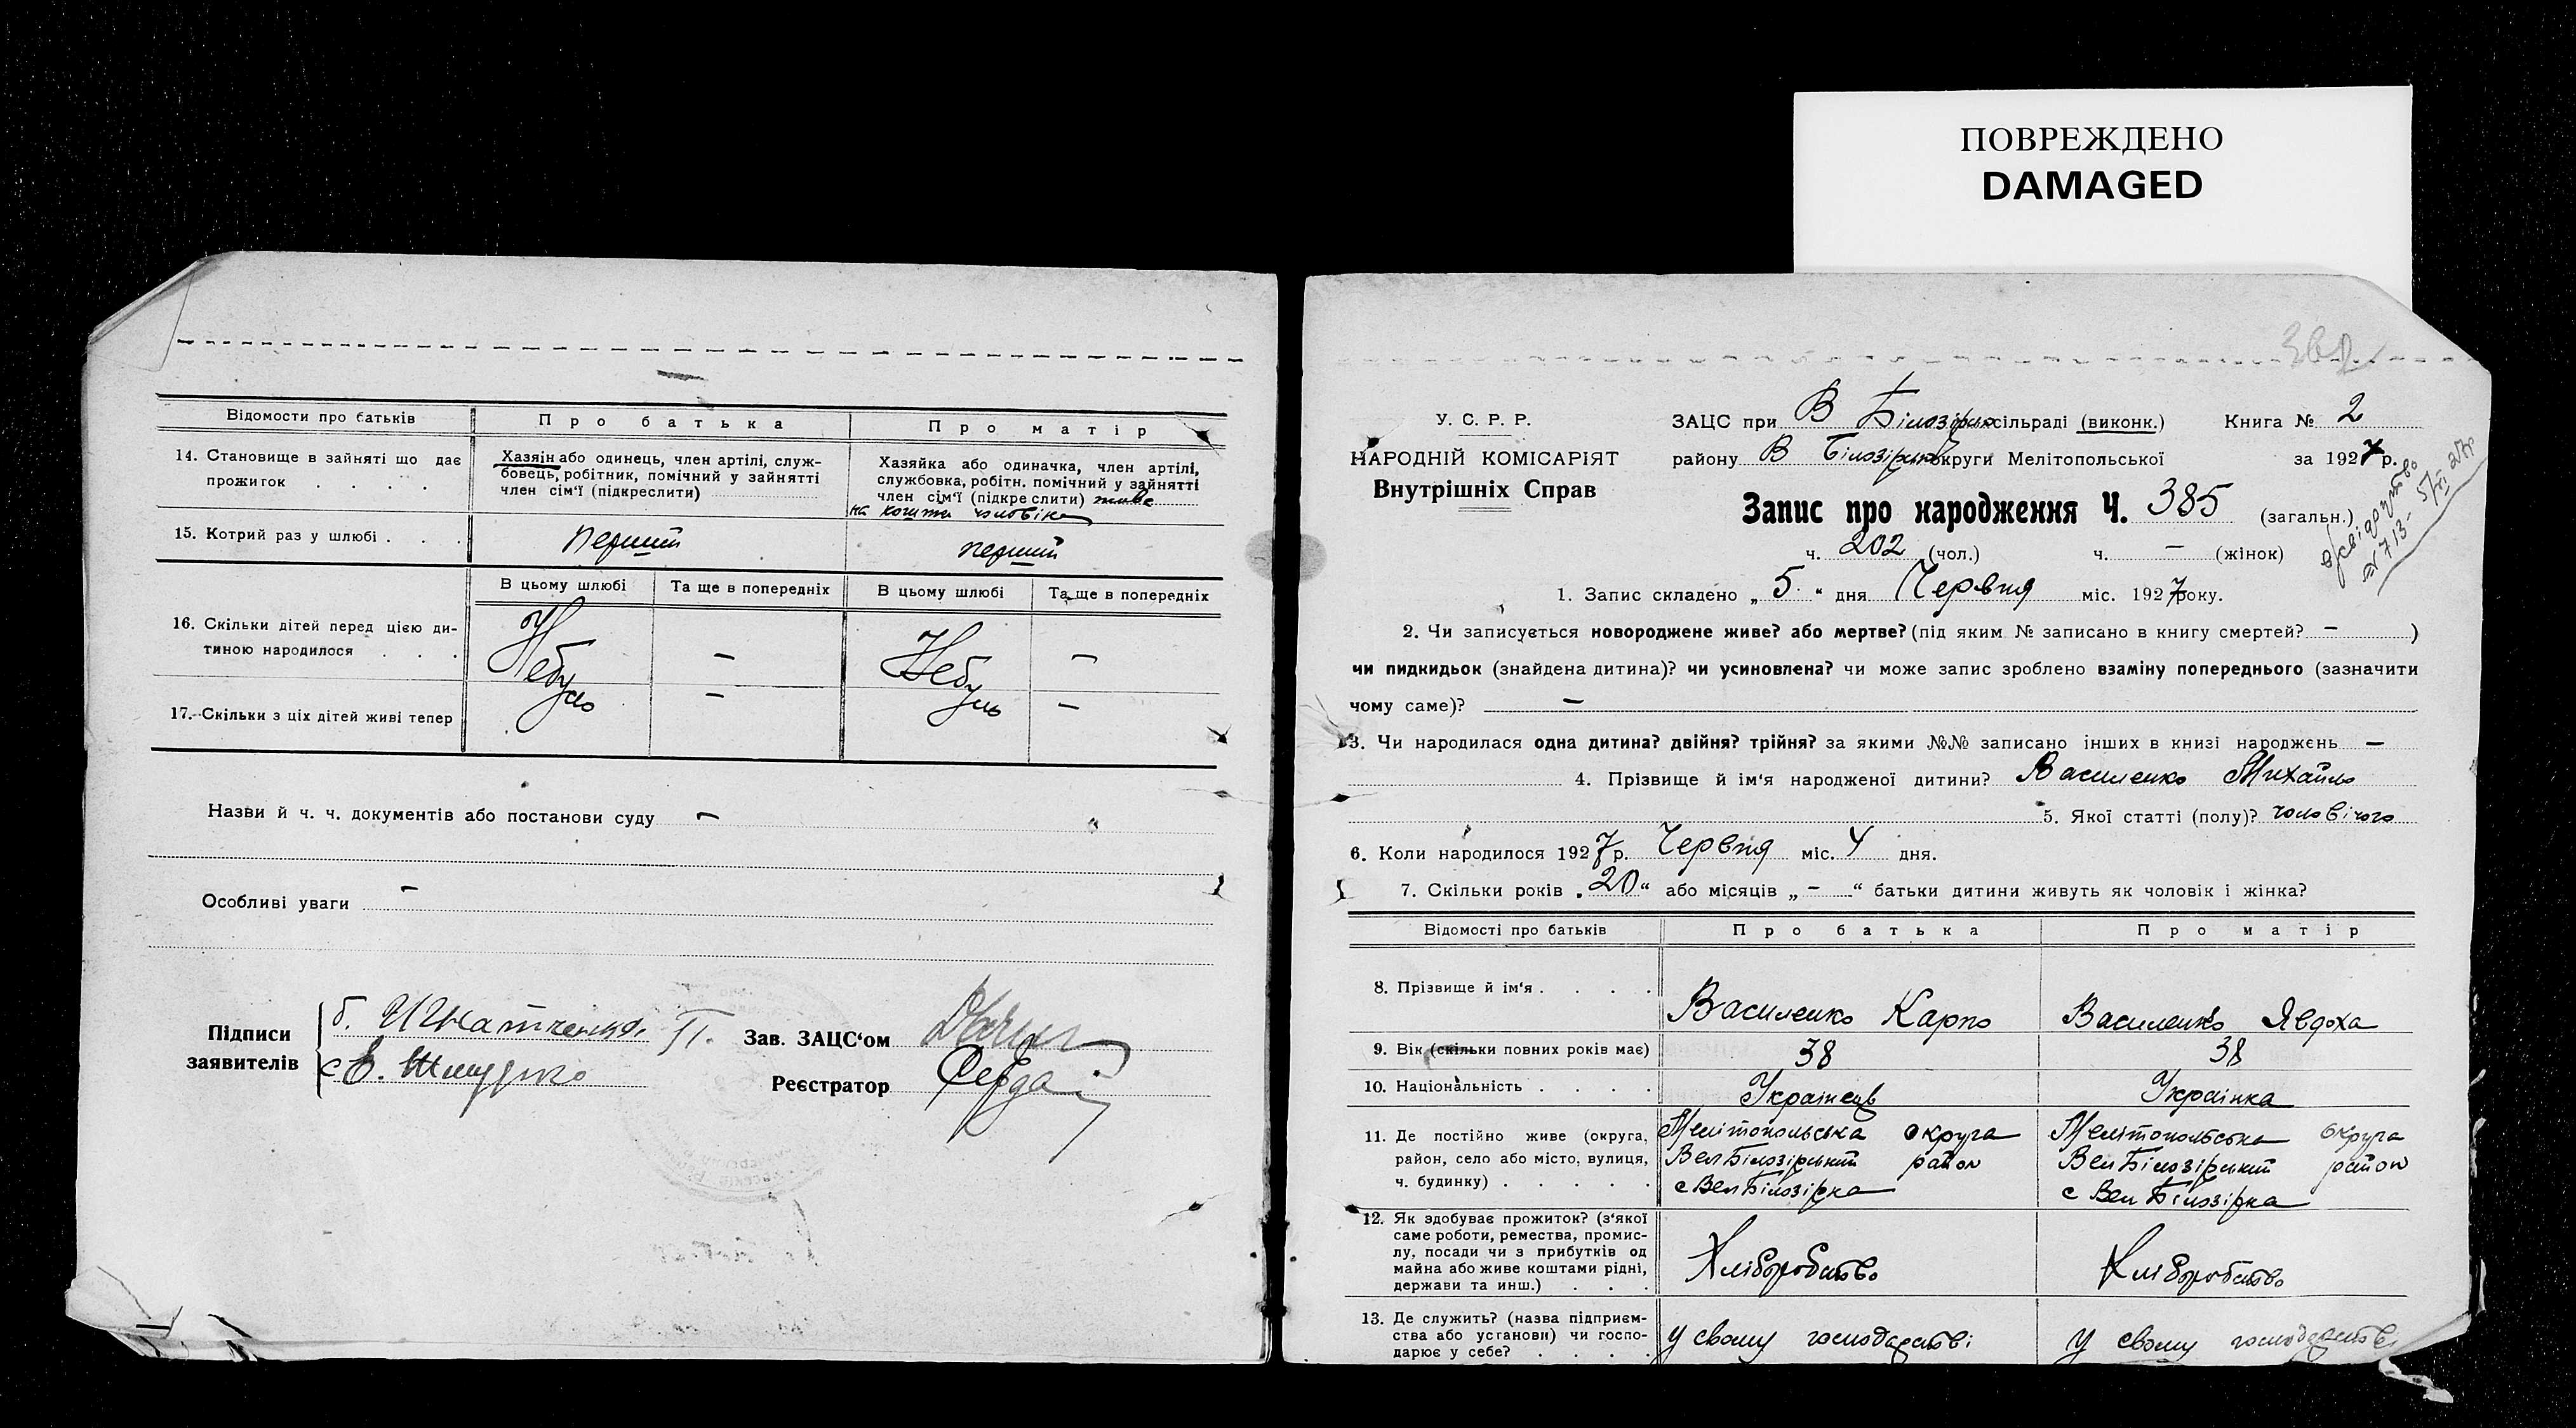 ПОВРЕЖДЕНО
DAMAGED
Відомости про батьків
Про батька
Про матір
14. Становище в зайняті що дає прожиток . . . .
Хазяін або одинець, член артілі, служ-
бовець, робітник, помічний у зайнятті
член сім'ї (підкреслити)
Хазяйка або одиначка, член артілі,
службовка, робітн. помічний у зайнятті
член сім'ї (підкреслити) живе
на кошти чоловіка
15. Котрий раз у шлюбі . . .
перший
перший
В цьому шлюбі
Та ще в попередніх
В цьому шлюбі
Та ще в попередніх
16. Скільки дітей перед цією ди-
тиною народилося . . .
Небуло
—
Небуло
—
17. Скільки з ціх дітей живі тепер
—
—
Назви й ч. ч. документів або постанови суду —
Особливі уваги —
Підписи
заявителів
б. Игнатченко П.
Зав. ЗАЦС'ом
Реєстратор
У. С. Р. Р.
НАРОДНІЙ КОМІСАРІЯТ
Внутрішніх Справ
ЗАЦС при В Білозірко сільраді (виконк.) Книга № 2
району В Білозірко округи Мелітопольської за 1927 р.
Запис про народження Ч. 385 (загальн.)
ч. 202 (чол.) ч. — (жінок)
свідоцтво
№ 713
1. Запис складено „5“ дня Червня міс. 1927 року.
2. Чи записується новороджене живе? або мертве? (під яким № записано в книгу смертей? — )
чи пидкидьок (знайдена дитина)? чи усиновлена? чи може запис зроблено взаміну попереднього (зазначити
чому саме)? —
3. Чи народилася одна дитина? двійня? трійня? за якими №№ записано інших в книзі народжень —
4. Прізвище й ім'я народженої дитини? Василенко Михайло
5. Якої статті (полу)? чоловічого
6. Коли народилося 1927 р. Червня міс. 4 дня.
7. Скільки років „20“ або місяців „—“ батьки дитини живуть як чоловік і жінка?
Відомості про батьків
Про батька
Про матір
8. Прізвище й ім'я . . . .
Василенко Карпо
Василенко Явдоха
9. Вік (скільки повних років має)
38
38
10. Національність . . . .
Українець
Українка
11. Де постійно живе (округа,
район, село або місто, вулиця,
ч. будинку) . . . . .
Мелітопольська округа
Вел Білозірський район
с Вел Білозірка
Мелітопольська округа
Вел Білозірський район
с Вел Білозірка
12. Як здобуває прожиток? (з'якої
саме роботи, ремества, промис-
лу, посади чи з прибутків од
майна або живе коштами рідні,
держави та инш.) . . .
Хліборобство
Хліборобство
13. Де служить? (назва підприєм-
ства або установи) чи госпо-
дарює у себе? . . . .
у свому господарстві
у свому господарстві